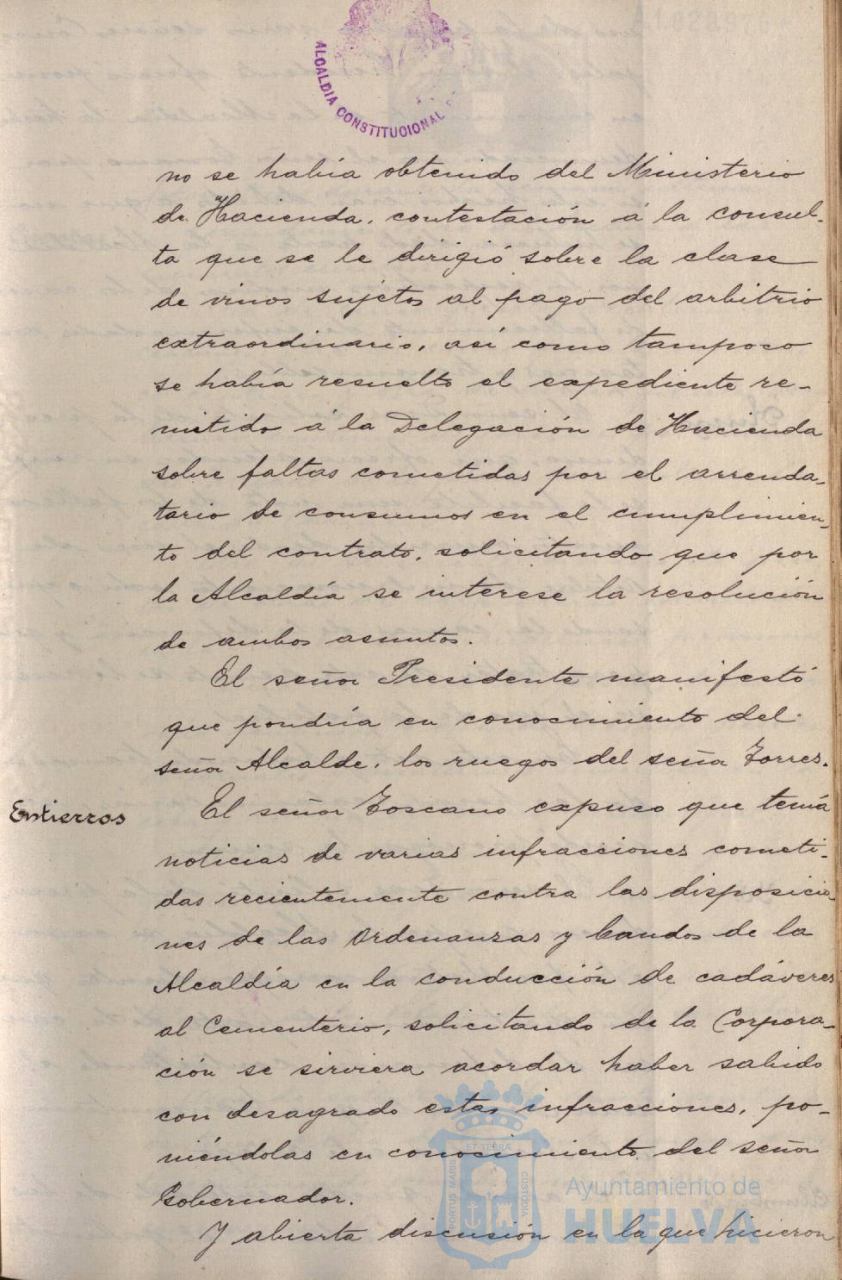 ALCALDIA CONSTITUCIONAL
no se había obtenido del Ministerio
de Hacienda, contestación á la consul-
ta que se le dirigió sobre la clase
de vinos sujetos al pago del arbitrio
extraordinario, así como tampoco
se había resuelto el expediente re-
mitido á la Delegación de Hacienda
sobre faltas cometidas por el arrenda-
tario de consumos en el cumplimien-
to del contrato, solicitando que por
la Alcaldía se interese la resolución
de ambos asuntos.
El señor Presidente manifestó
que pondría en conocimiento del
señor Alcalde, los ruegos del señor Torres.
Entierros
El señor Toscano expuso que tenía
noticias de varias infracciones cometi-
das recientemente contra las disposicio
nes de las Ordenanzas y bandos de la
Alcaldía en la conducción de cadáveres
al Cementerio, solicitando de la Corpora-
ción se sirviera acordar haber sabido
con desagrado estas infracciones, po-
niéndolas en conocimiento del señor
Gobernador.
Y abierta discusión en la que hicieron
PORTUS MARIS ET TERRAE CUSTODIA
Ayuntamiento de
HUELVA